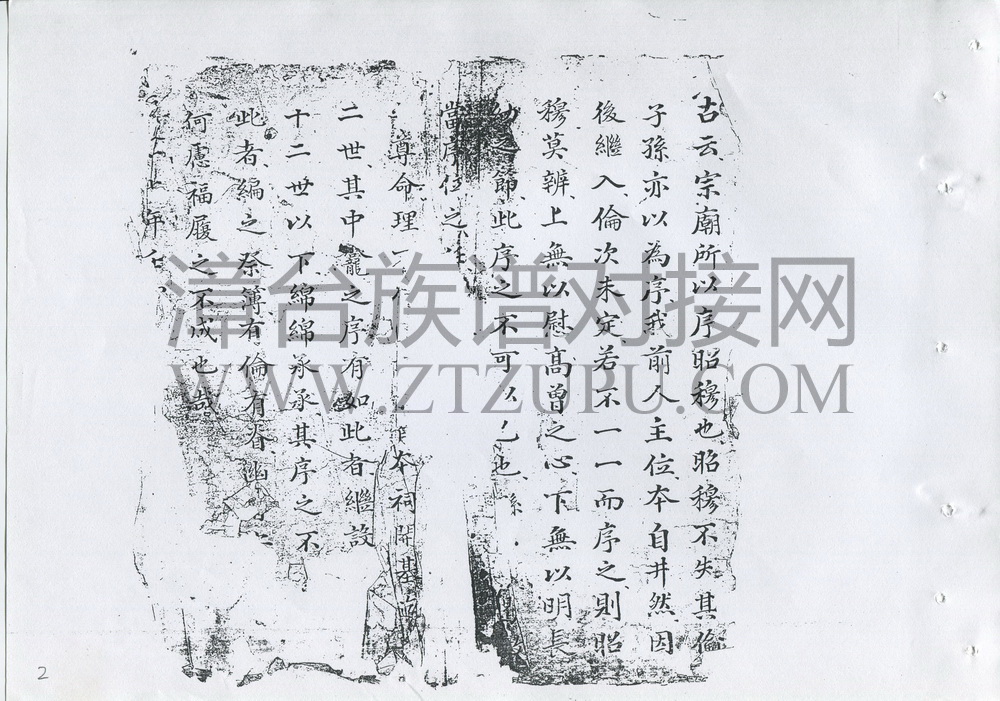 古云宗廟所以序昭穆也昭穆不失其倫
子孫亦以為序我前人主位本自井然因
後繼入倫次未定若不一一而序之則昭
穆莫辨上無以慰高曾之心下無以明長
幼之節此序之不可以也
當序位之
尊命理本祠開基
二世其中龕之序有如此者繼設
十二世以下綿綿承承其序之不
此者編之祭簿有倫有脊幽
何慮福履之不成也哉
年
漳台族谱对接网
WWW.ZTZUPU.COM
2